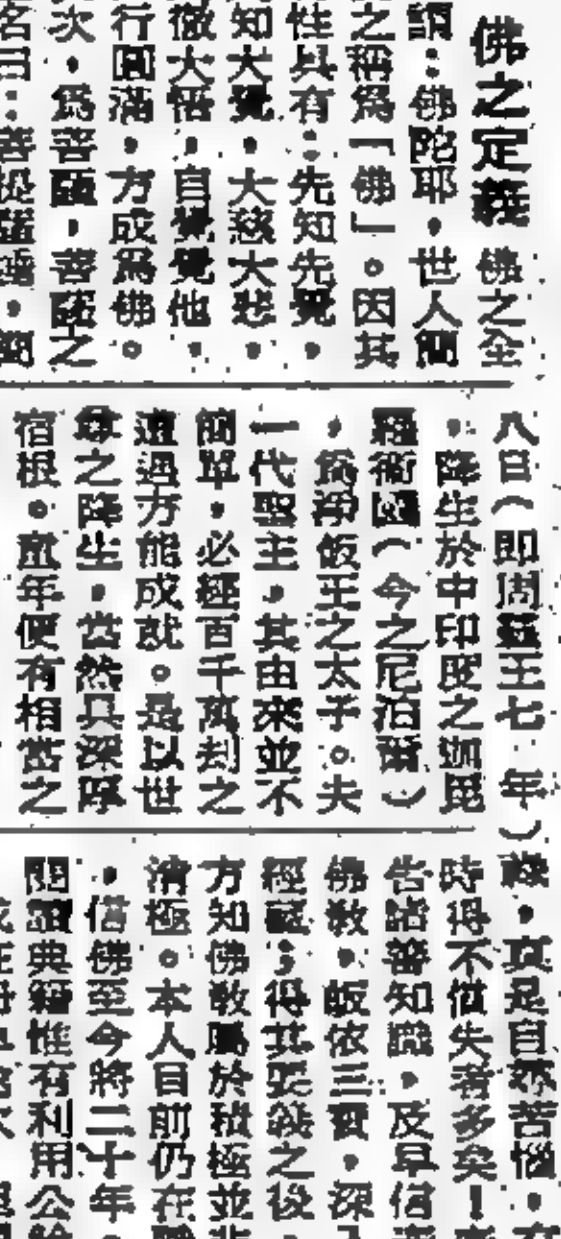 佛之定義 佛之全
謂：佛陀耶，世人簡
之稱爲「佛」。因其
性具有：先知先覺，
知大覺，大慈大悲，
徹大悟，自覺覺他，
行圓滿，方成爲佛。
次，爲菩薩，菩薩之
名曰：菩提薩埵，簡
八日（即周 王七 年）
，降生於中印度之迦毘
羅衛國（今之尼泊爾）
，爲淨飯王之太子。夫
一代聖主，其由來並不
簡單，必經百千萬刧之
遭遇方能成就。是以世
尊之降生，當然具深厚
宿根。童年便有相當之
，真是自尋苦惱，
時得不償失者多矣！
告諸善知識，及早信
佛教，皈依三寶，深
經藏；得其要義之後
方知佛教屬於積極並非
消極。本人目前仍在
，信佛至今將二十年，
閱讀典籍惟有利用公餘